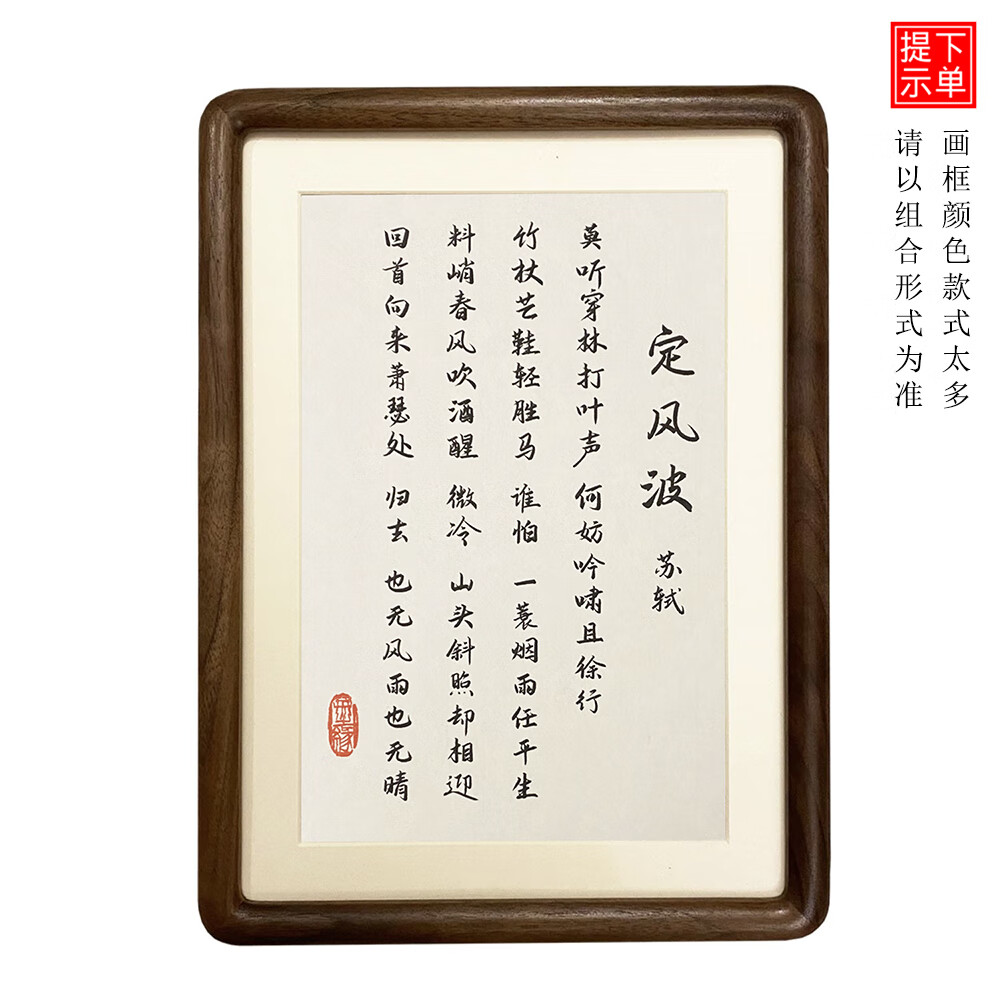 下单
提示
画框颜色款式太多
请以组合形式为准
定风波 苏轼
莫听穿林打叶声 何妨吟啸且徐行
竹杖芒鞋轻胜马 谁怕 一蓑烟雨任平生
料峭春风吹酒醒 微冷 山头斜照却相迎
回首向来萧瑟处 归去 也无风雨也无晴